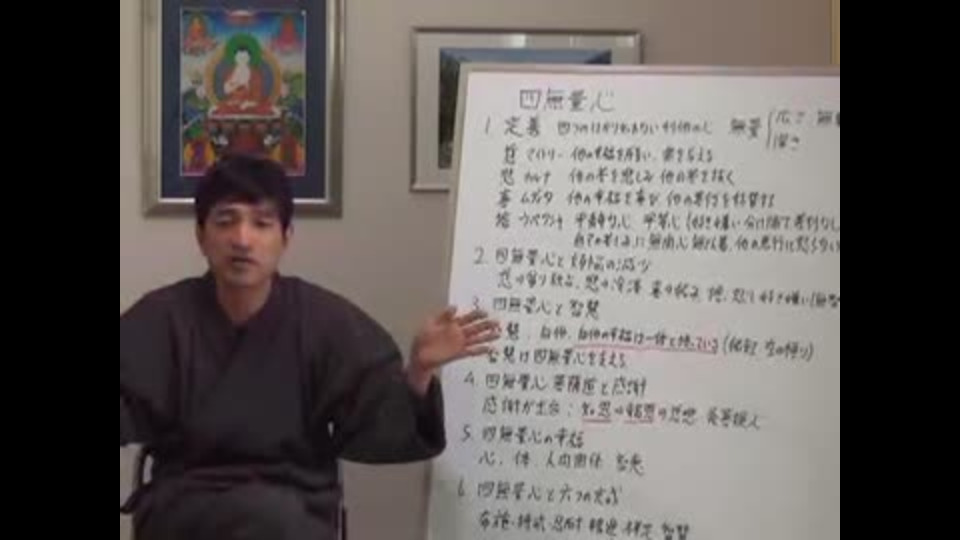 四無量心
1. 定義 四つのはかりしれない利他の心 無量 広さ 無
深さ
慈 マイトリー 他の幸福を願い、楽を与える
悲 カルナ 他の苦を悲しみ 他の苦を抜く
喜 ムディタ 他の幸福を喜び 他の善行を称賛する
捨 ウペクシャ 平静な心 平等心 (好き嫌い分け隔て差別なし
自分の苦しみに無頓心 他の悪行に怒らない
2. 四無量心と
3. 四無量心と智慧
智慧: 自他、自他の幸福は一体と悟っている (縁起 空の悟り)
智慧は四無量心を支える
4. 四無量心 菩薩道と感謝
感謝が土台: 知恩→報恩の思想
5. 四無量心の幸福
心、体、人間関係 智慧
6. 四無量心と六つの完成
布施・持戒・忍耐・精進・禅定・智慧